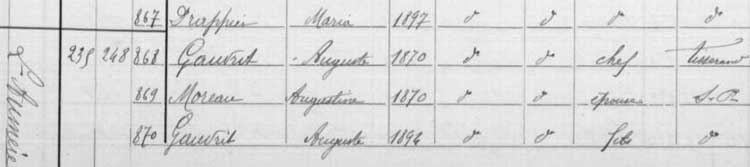 867 Drappier Maria 1897 d d d d
235 248 868 Gauvrit Auguste 1870 d d chef tisserand
869 Moreau Augustine 1870 d d épouse S.P.
870 Gauvrit Auguste 1894 d d fils d